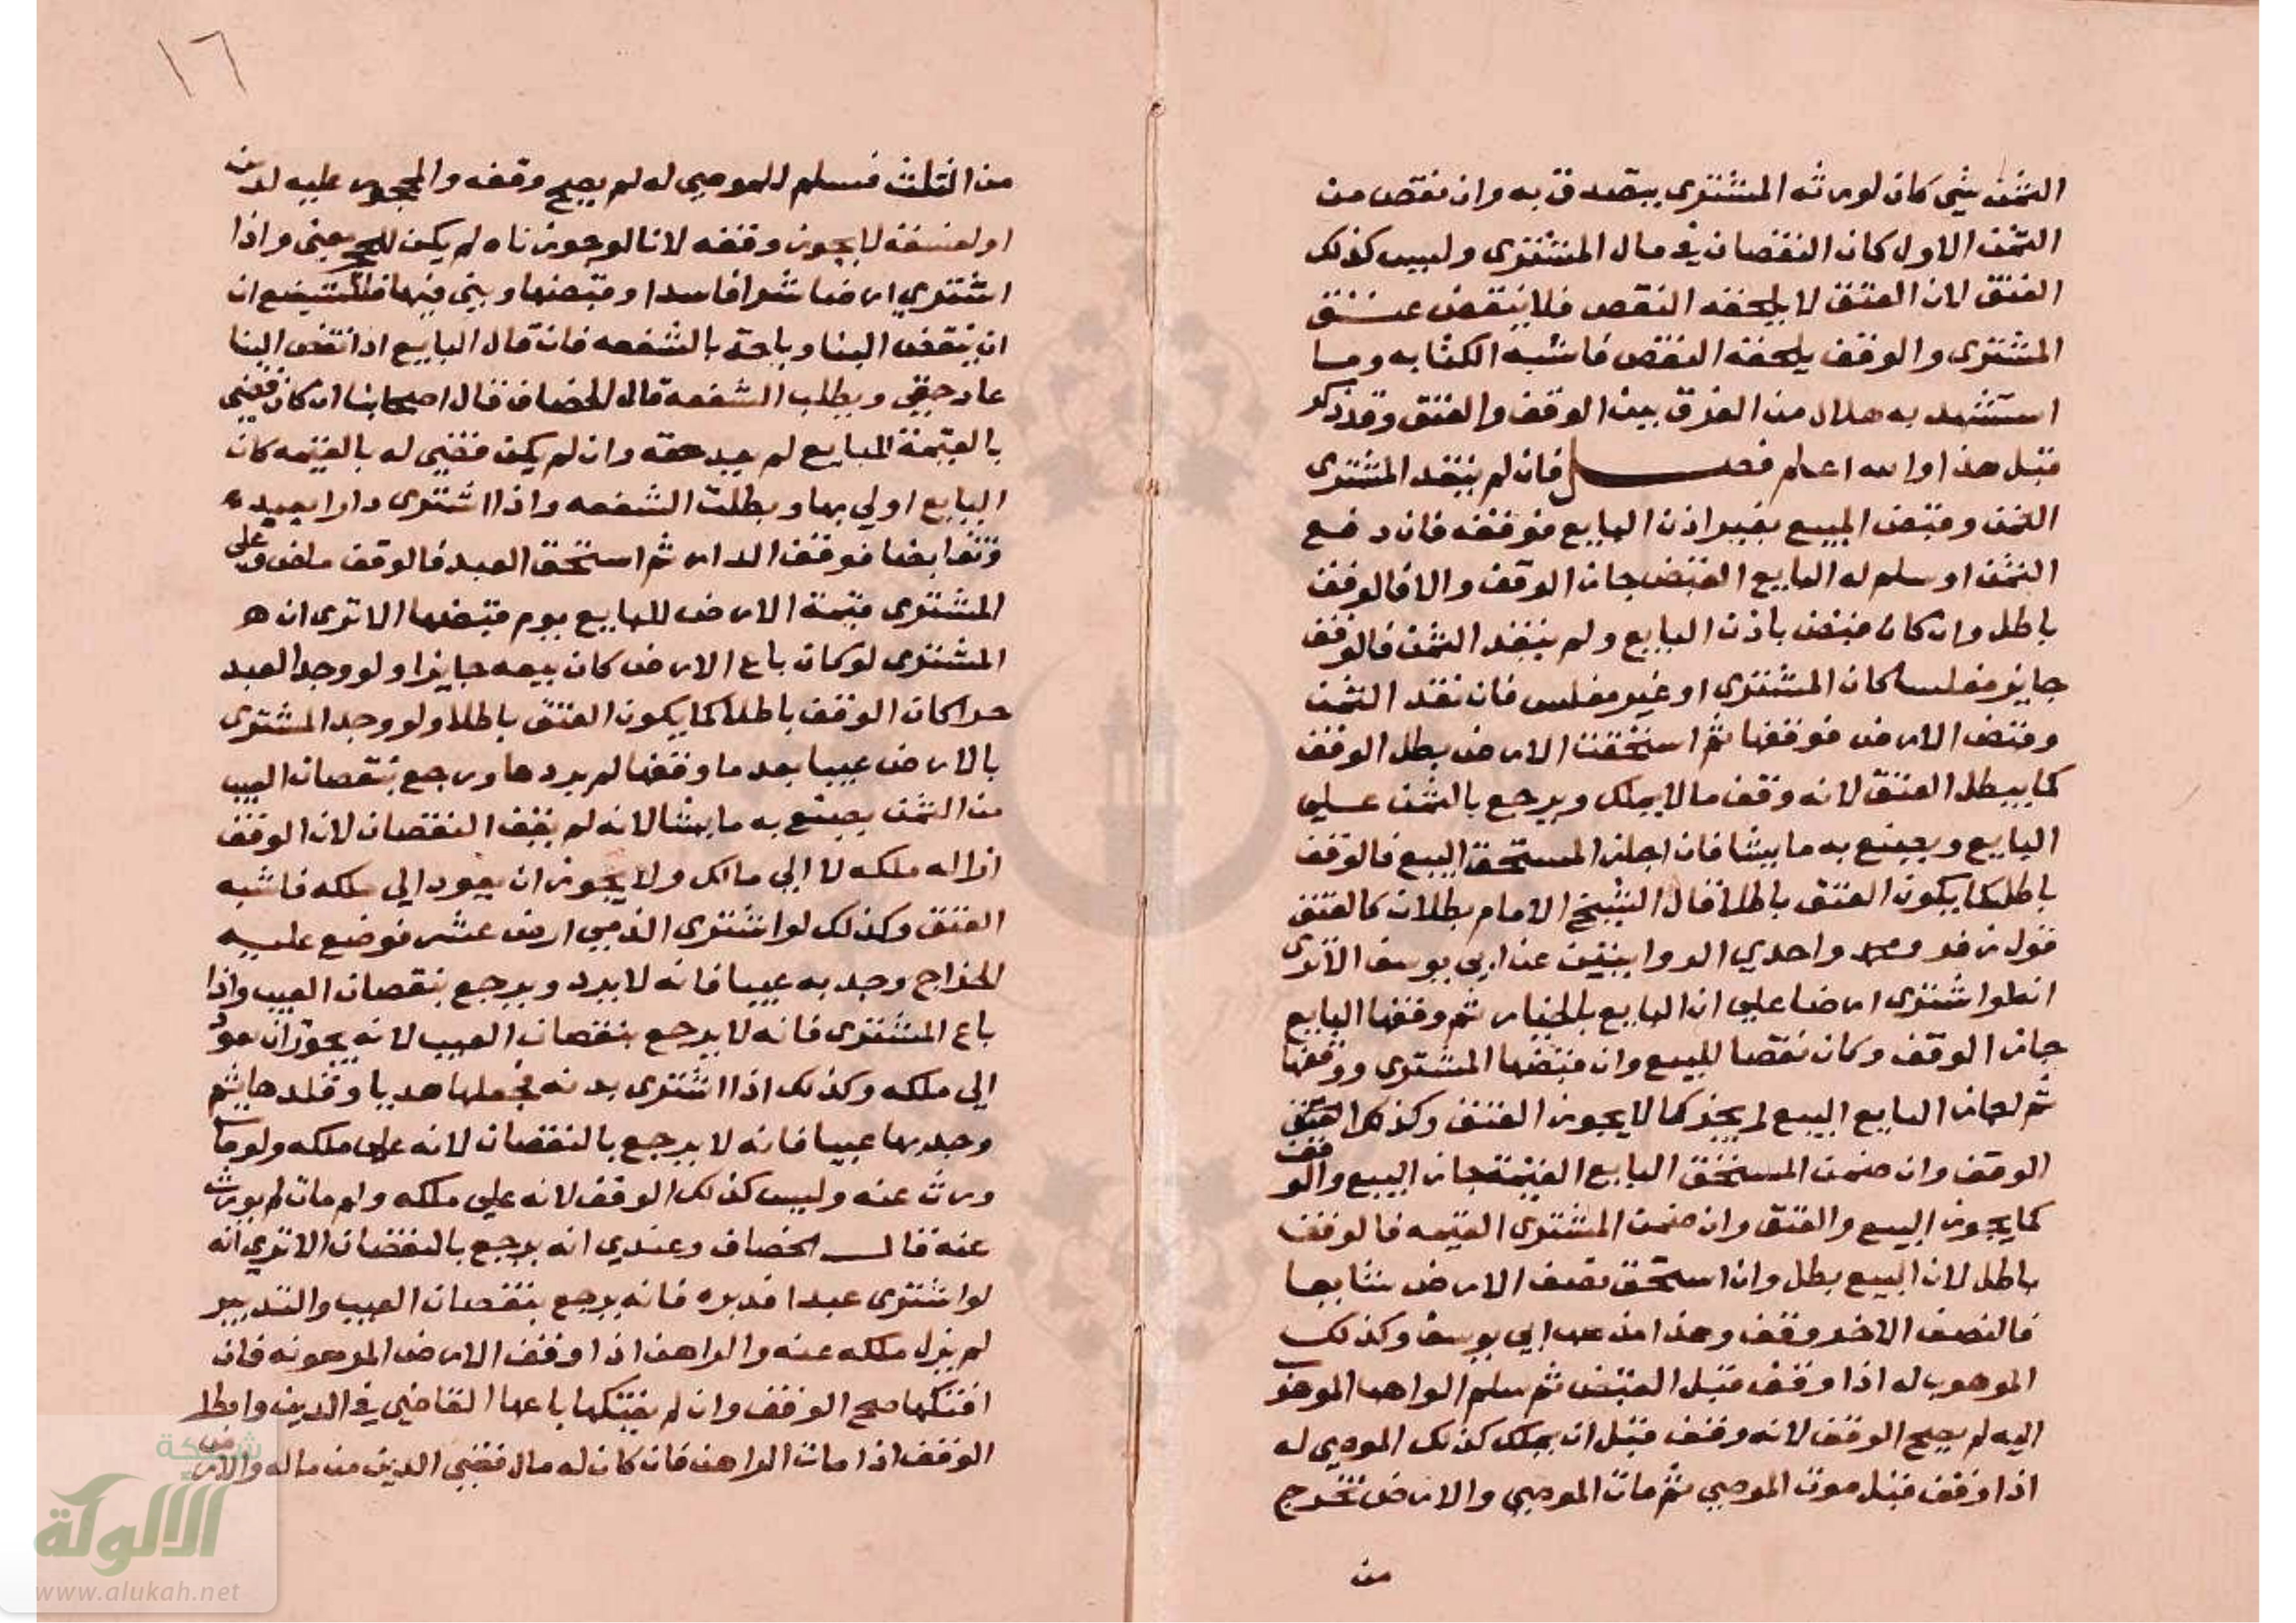 الثمن شي كان لورثه المشتري يتصدق به وان نقص من
الثمن الاول كان النقصان في مال المشتري وليس كذلك
العتق لان العتق لا يلحقه النقض فلا ينتقض عتق
المشتري والوقف يلحقه النقض فاشبه الكتابه وما
استشهد به هلال من الفرق بين الوقف والعتق وقد ذكر
قبل هذا والله اعلم فصل فان لم ينقد المشتري
الثمن وقبض المبيع بغير اذن البايع فوقفه فان دفع
الثمن او سلم له البايع القبض جاز الوقف والا فالوقف
باطل وان كان قبض باذن البايع ولم ينقد الثمن فالوقف
جايز مفلسا كان المشتري او غير مفلس فان نقد الثمن
وقبض الارض فوقفها ثم استحقت الارض بطل الوقف
كما يبطل العتق لانه وقف مالا يملك ويرجع بالثمن علي
البايع ويصنع به ما يشا فان اجاز المستحق البيع فالوقف
باطل كما يكون العتق باطلا قال الشيخ الامام بطلان كالعتق
قول زفر ومحمد واحدي الروايتين عن ابي يوسف الا تري
انه لو اشتري ارضا علي ان البايع بالخيار ثم وقفها البايع
جاز الوقف وكان نقضا للبيع وان قبضها المشتري ووقفها
ثم اجاز البايع البيع لم يجز كما لا يجوز العتق وكذلك العتق
الوقف وان ضمن المستحق البايع القيمة جاز البيع والوقف
كما يجوز البيع والعتق وان ضمن المشتري القيمه فالوقف
باطل لان البيع بطل وان استحق نصف الارض شايعا
فالنصف الاخر وقف وهذا مذهب ابي يوسف وكذلك
الموهوب له اذا وقف قبل القبض ثم سلم الواهب الموهوب
اليه لم يصح الوقف لانه وقف قبل ان يملك كذلك الموصي له
اذا وقف قبل موت الموصي ثم مات الموصي والارض تخرج
من
١٦
من الثلث فسلم للموصي له لم يصح وقفه والمحجور عليه لدين
او لفسقه لا يجوز وقفه لانا لو جوزناه لم يكن للحجر معني واذا
اشتري ارضا شرا فاسدا وقبضها وبني فيها فللشفيع ان
ان ينقض البنا وياخذ بالشفعه فان قال البايع اذا نقض البنا
عاد حقي وبطلت الشفعة قال الخصاف قال اصحابنا ان كان قضي
بالقيمة للبايع لم يعد حقه وان لم يكن قضي له بالقيمه كان
البايع اولي بها وبطلت الشفعه واذا اشتري دارا بعبد
وتقابضا فوقف الدار ثم استحق العبد فالوقف ماض وعلي
المشتري قيمة الارض للبايع يوم قبضها الا تري ان هو
المشتري لو كان باع الارض كان بيعه جايزا ولو وجد العبد
حرا كان الوقف باطلا كما يكون العتق باطلا ولو وجد المشتري
بالارض عيبا بعد ما وقفها لم يردها ورجع بنقصان العيب
من الثمن يصنع به ما يشا لانه لم يقف النقصان لان الوقف
ازاله ملكه لا الي مالك ولا يجوز ان يعود الي ملكه فاشبه
العتق وكذلك لو اشتري الذمي ارض عشر فوضع عليه
الخراج وجد به عيبا فانه لا يرد ويرجع بنقصان العيب واذا
باع المشتري فانه لا يرجع بنقصان العيب لانه يجوز ان يعود
الي ملكه وكذلك اذا اشتري بدنه فجعلها هديا وقلدها ثم
وجد بها عيبا فانه لا يرجع بالنقصان لانه علي ملكه ولو مات
ورث عنه وليس كذلك الوقف لانه علي ملكه ولو مات لم يورث
عنه قال الخصاف وعندي انه يرجع بالنقصان الا تري انه
لو اشتري عبدا فدبره فانه يرجع بنقصان العيب والتدبير
لم يزل ملكه عنه والراهن اذا وقف الارض المرهونه فان
افتكها صح الوقف وان لم يفتكها باعها القاضي في الدين وابطل
الوقف اذا مات الراهن فان كان له مال قضي الدين من ماله والارض
شبكة
الألولة
www.alukah.net